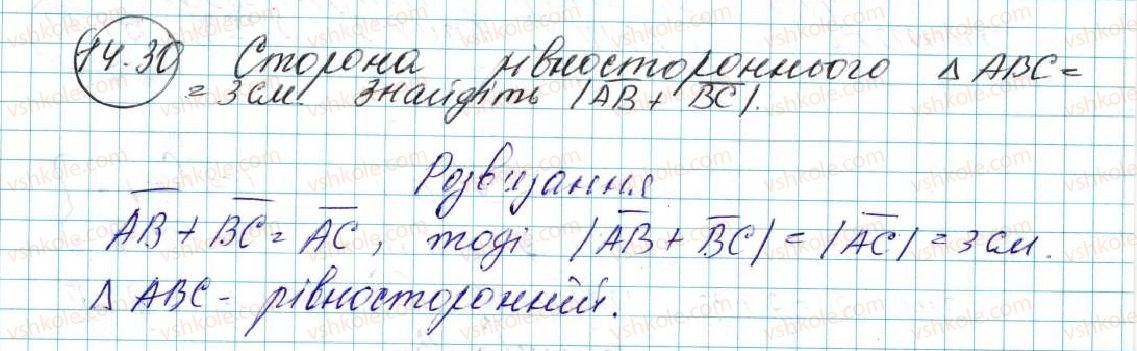 14.30 Сторона рівностороннього Δ ABC =
= 3 см. Знайдіть |A̅B̅ + B̅C̅|.
Розв'язання
A̅B̅ + B̅C̅ = A̅C̅, тоді |A̅B̅ + B̅C̅| = |A̅C̅| = 3 см.
Δ ABC - рівносторонний.